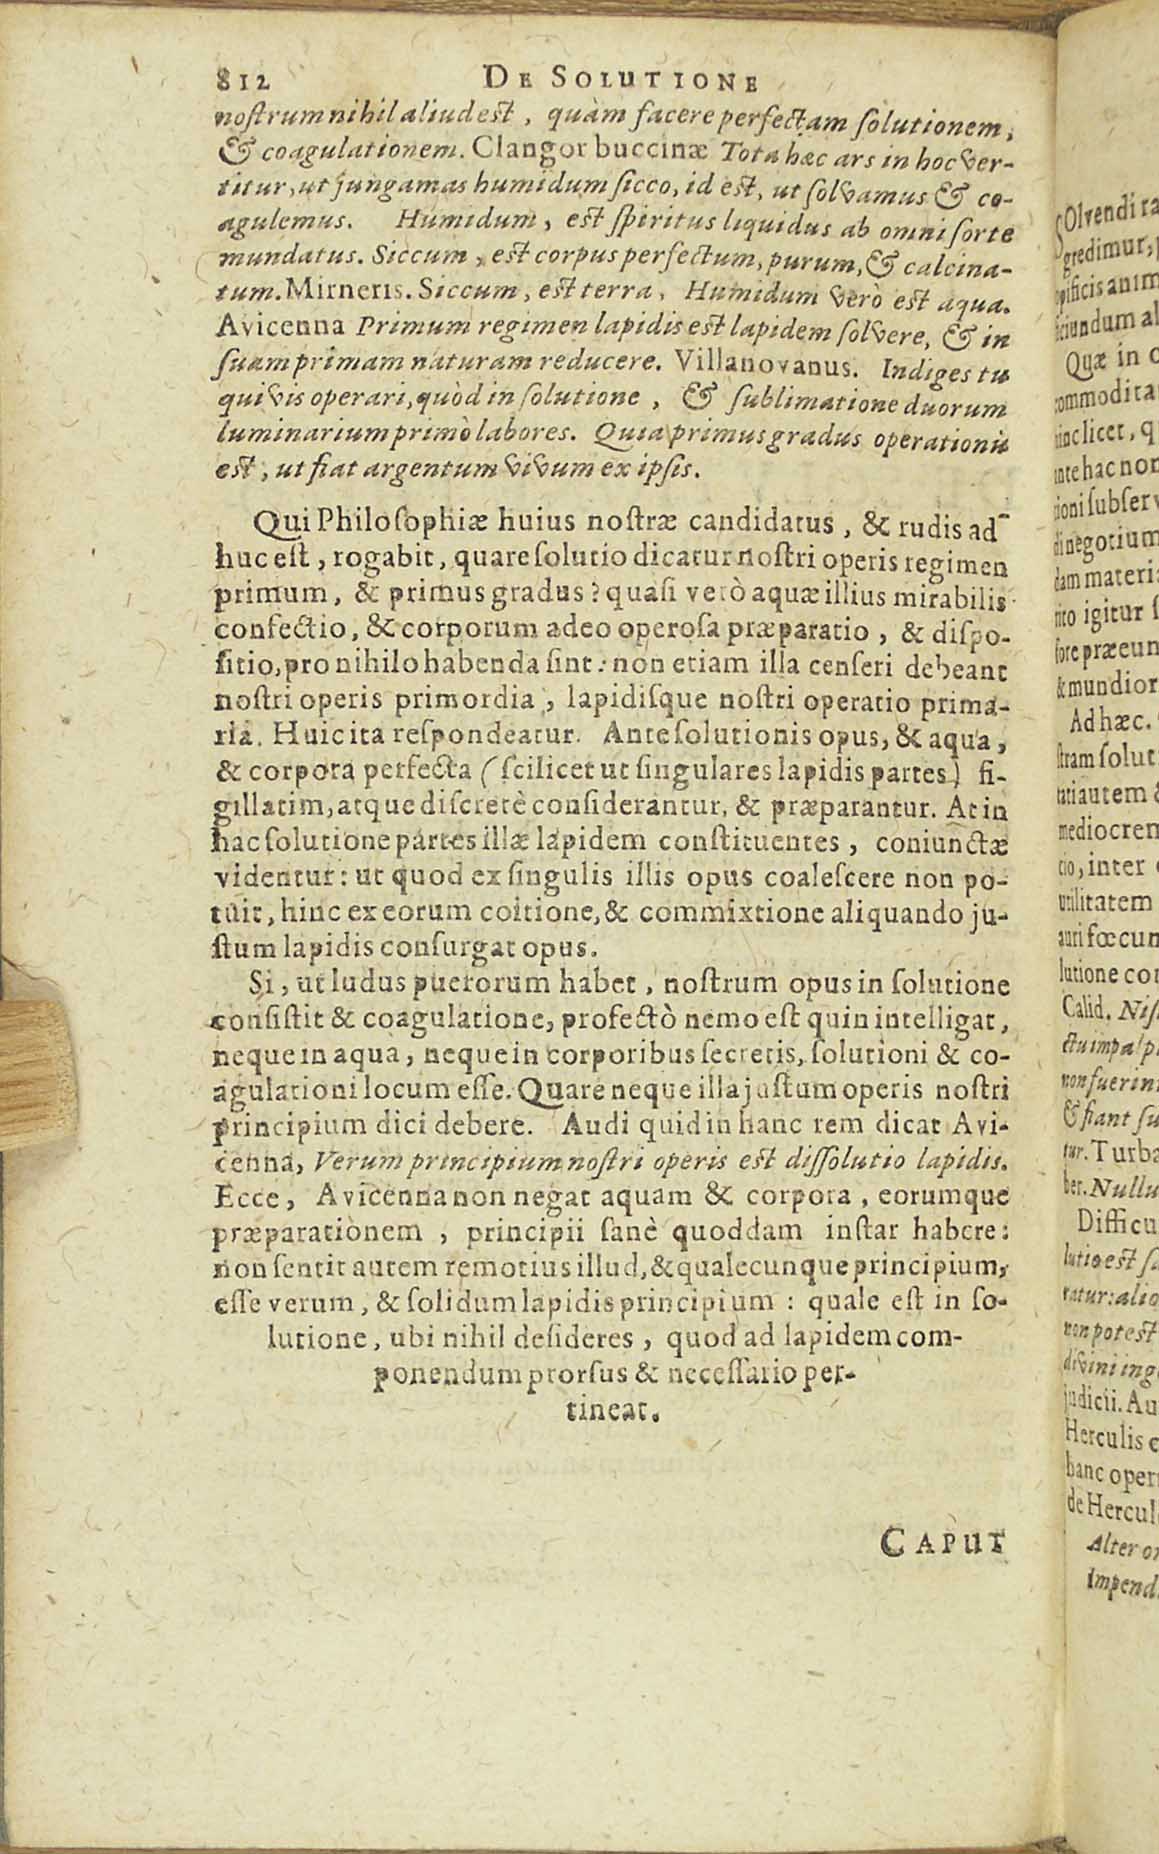 812 DE SOLUTIONE
nostrum nihil aliud est, quàm facere perfectam solutionem,
& coagulationem. Clangor buccinæ Tota hæc ars in hoc ver-
titur, ut jungamas humidum sicco, id est, ut solvamus & co-
agulemus. Humidum, est spiritus liquidus ab omni sorte
mundatus. Siccum, est corpus perfectum, purum, & calcina-
tum. Mirneris. Siccum, est terra, Humidum verò est aqua.
Avicenna Primum regimen lapidis est lapidem solvere, & in
suam primam naturam reducere. Villanovanus. Indiges tu
qui vis operari, quòd in solutione, & sublimatione duorum
luminarium primò labores. Quia primus gradus operationis
est, ut fiat argentum vivum ex ipsis.
Qui Philosophiæ huius nostræ candidatus, & rudis ad-
huc est, rogabit, quare solutio dicatur nostri operis regimen
primum, & primus gradus? quasi verò aquæ illius mirabilis
confectio, & corporum adeo operosa præparatio, & dispo-
sitio, pro nihilo habenda sint: non etiam illa censeri debeant
nostri operis primordia, lapidisque nostri operatio prima-
ria. Huic ita respondeatur. Ante solutionis opus, & aqua,
& corpora perfecta (scilicet ut singulares lapidis partes) si-
gillatim, atque discretè considerantur, & præparantur. At in
hac solutione partes illæ lapidem constituentes, coniunctæ
videntur: ut quod ex singulis illis opus coalescere non po-
tuit, hinc ex eorum coitione, & commixtione aliquando ju-
stum lapidis consurgat opus.
Si, ut ludus puerorum habet, nostrum opus in solutione
consistit & coagulatione, profectò nemo est quin intelligat,
neque in aqua, neque in corporibus secretis, solutioni & co-
agulationi locum esse. Quare neque illa justum operis nostri
principium dici debere. Audi quid in hanc rem dicat Avi-
cenna, Verum principium nostri operis est dissolutio lapidis.
Ecce, Avicenna non negat aquam & corpora, eorumque
præparationem, principii sanè quoddam instar habere:
non sentit autem remotius illud, & qualecunque principium,
esse verum, & solidum lapidis principium: quale est in so-
lutione, ubi nihil desideres, quod ad lapidem com-
ponendum prorsus & necessario per-
tineat.
CAPUT
SOlvendi
gredimur,
Quæ in
Ad hæc.
Calid.
Turba
Herculis
hanc
Alter